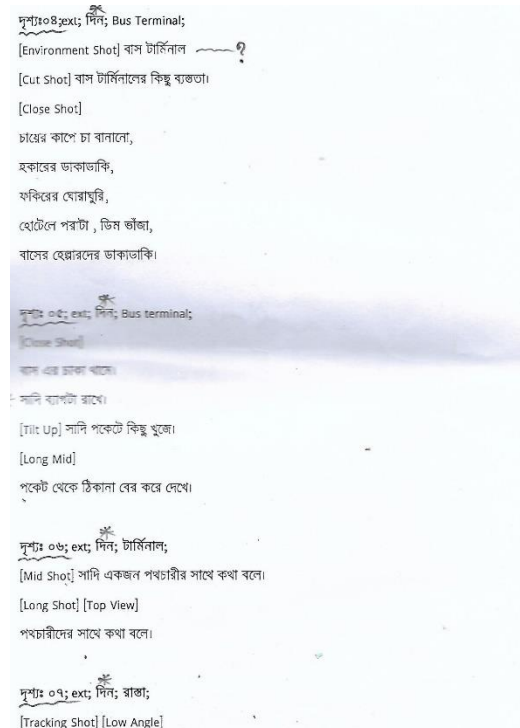 দৃশ্যঃ০৪;ext; দিন; Bus Terminal;
[Environment Shot] বাস টার্মিনাল ?
[Cut Shot] বাস টার্মিনালের কিছু ব্যস্ততা।
[Close Shot]
চায়ের কাপে চা বানানো,
হকারের ডাকাডাকি,
ফকিরের ঘোরাঘুরি,
হোটেলে পরাটা , ডিম ভাঁজা,
বাসের হেল্পারদের ডাকাডাকি।
দৃশ্যঃ ০৫; ext; দিন; Bus terminal;
[Close Shot]
বাস এর চাকা থামে।
সাদি ব্যাগটা রাখে।
[Tilt Up] সাদি পকেটে কিছু খুজে।
[Long Mid]
পকেট থেকে ঠিকানা বের করে দেখে।
দৃশ্যঃ ০৬; ext; দিন; টার্মিনাল;
[Mid Shot] সাদি একজন পথচারীর সাথে কথা বলে।
[Long Shot] [Top View]
পথচারীদের সাথে কথা বলে।
দৃশ্যঃ ০৭; ext; দিন; রাস্তা;
[Tracking Shot] [Low Angle]